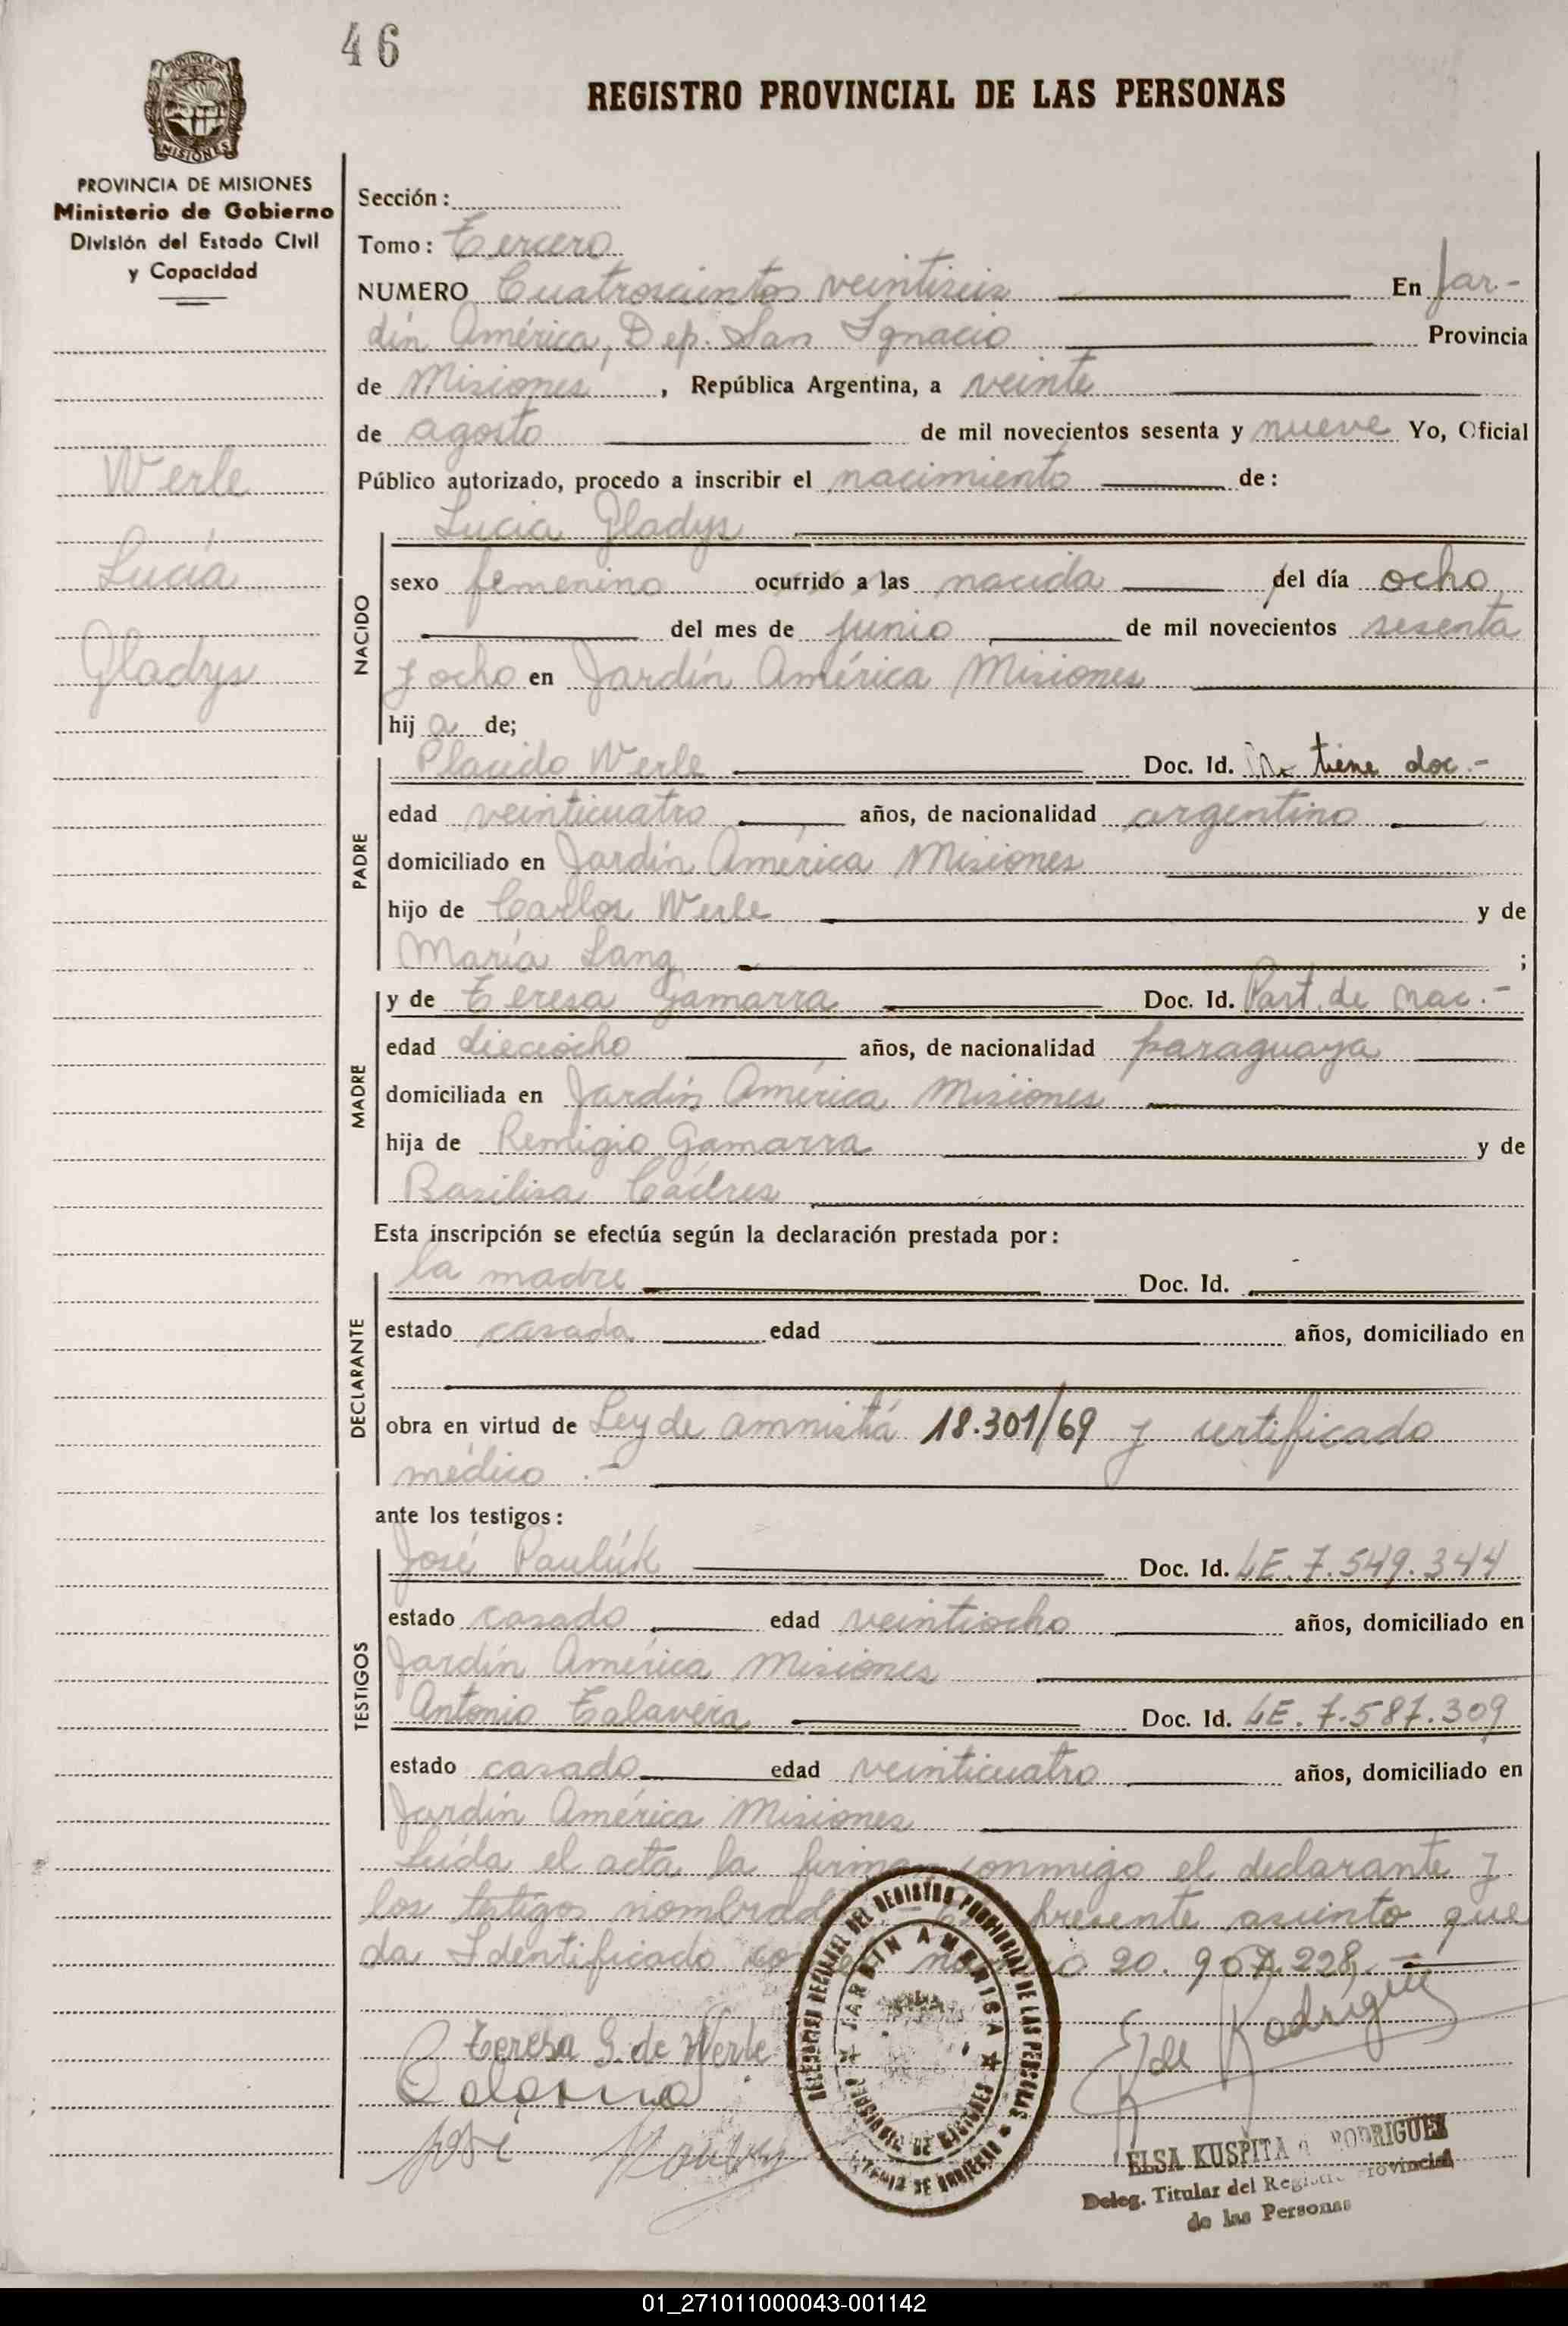 46
REGISTRO PROVINCIAL DE LAS PERSONAS
MISIONES
PROVINCIA DE MISIONES
Ministerio de Gobierno
División del Estado Civil
y Capacidad
Werle
Lucía
Gladys
Sección:
Tomo: Tercero
NUMERO Cuatroscientos veintiseis En Jar-
dín América, Dep. San Ignacio Provincia
de Misiones, República Argentina, a veinte
de agosto de mil novecientos sesenta y nueve Yo, Oficial
Público autorizado, procedo a inscribir el nacimiento de:
Lucia Gladys
NACIDO
sexo femenino ocurrido a las nacida del día ocho
del mes de junio de mil novecientos sesenta
y ocho en Jardín América Misiones
hij a de;
PADRE
Placido Werle Doc. Id. No tiene doc.-
edad veinticuatro años, de nacionalidad argentino
domiciliado en Jardín América Misiones
hijo de Carlos Werle y de
María Lang ;
MADRE
y de Teresa Gamarra Doc. Id. Part. de nac.-
edad dieciocho años, de nacionalidad paraguaya
domiciliada en Jardín América Misiones
hija de Remigio Gamarra y de
Basilisa
Esta inscripción se efectúa según la declaración prestada por:
DECLARANTE
la madre Doc. Id.
estado casada edad años, domiciliado en
obra en virtud de Ley de amnistía 18.301/69 y certificado
médico .-
ante los testigos:
TESTIGOS
José Paulúk Doc. Id. LE. 7.549.344
estado casado edad veintiocho años, domiciliado en
Jardín América Misiones
Antonio Talavera Doc. Id. LE. 7.587.309
estado casado edad veinticuatro años, domiciliado en
Jardín América Misiones
Leída el acta la firman conmigo el declarante y
los testigos presente asiento que
da Identificado 20.
Teresa G. de Werle
José
E de Rodríguez
JARDIN AMERICA
ELSA KUSPITA RODRIGUEZ
Deleg. Titular del Registro Provincial
de las Personas
01_271011000043-001142